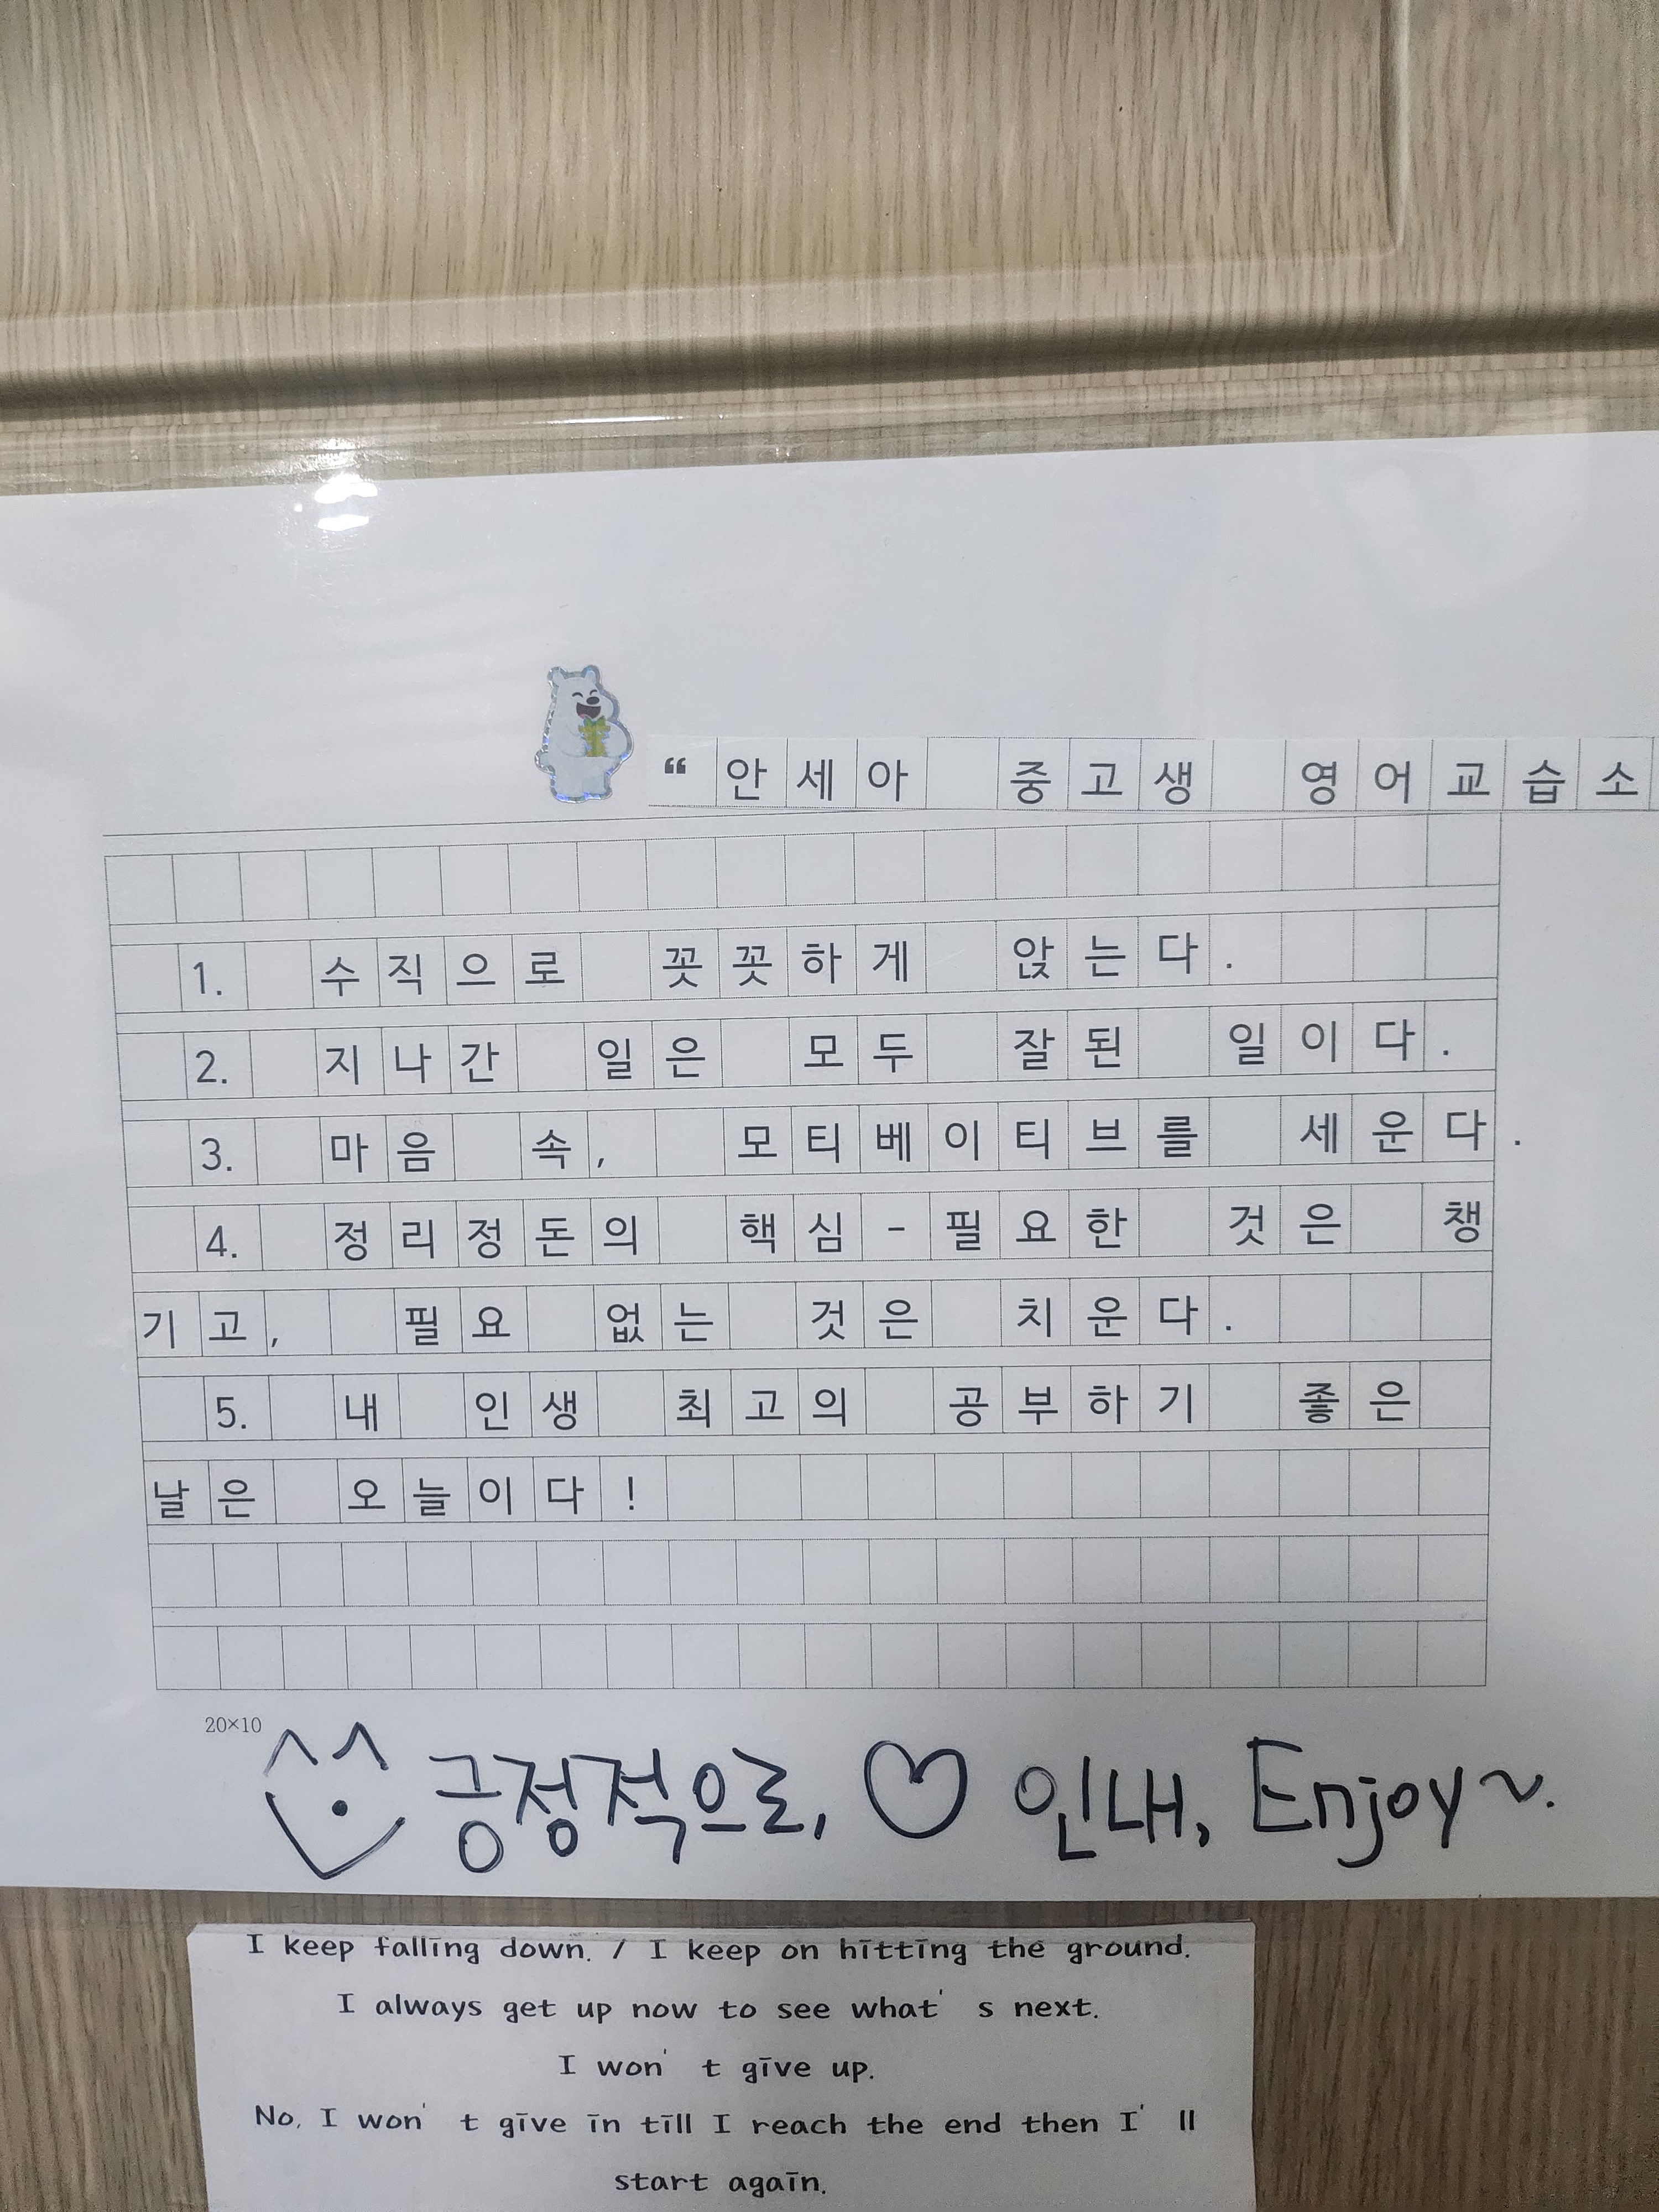 “ 안세아 중고생 영어교습소
1. 수직으로 꼿꼿하게 앉는다.
2. 지나간 일은 모두 잘된 일이다.
3. 마음 속, 모티베이티브를 세운다.
4. 정리정돈의 핵심-필요한 것은 챙
기고, 필요 없는 것은 치운다.
5. 내 인생 최고의 공부하기 좋은
날은 오늘이다!
20×10
긍정적으로, ♡ 인내, Enjoy~.
I keep falling down. / I keep on hitting the ground.
I always get up now to see what' s next.
I won' t give up.
No, I won' t give in till I reach the end then I' ll
start again.